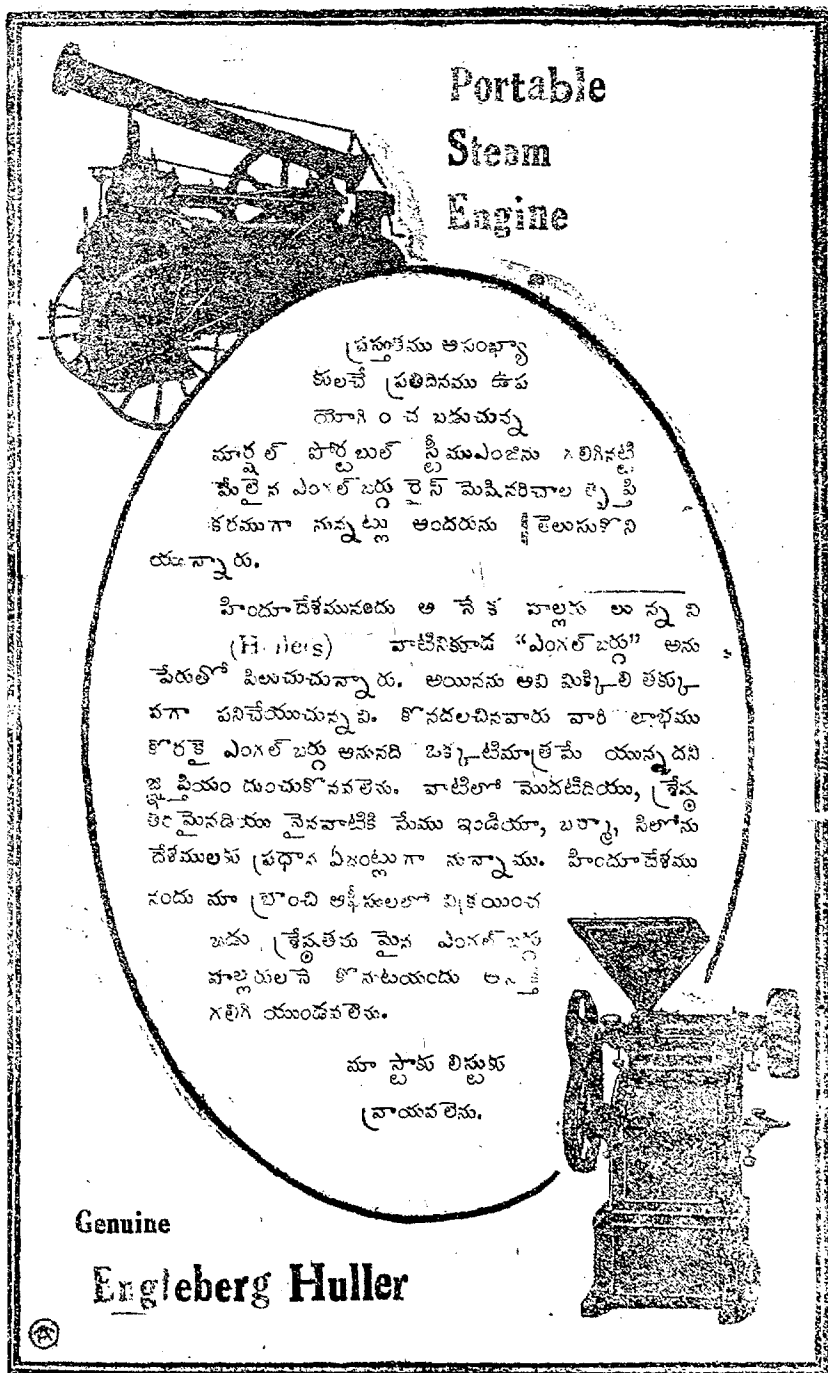 Portable
Steam
Engine
ప్రస్తుతము అసంఖ్యా
కులచే ప్రతిదినము ఉప
యోగించ బడుచున్న
మార్షల్ పోర్టబుల్ స్టీముఎంజిను గలిగినట్టి
మేలైన ఎంగల్ బర్గు రైస్ మెషినరిచాల తృప్తి
కరముగా నున్నట్లు అందరును తెలుసుకొని
యున్నారు.
హిందూదేశమునందు అనేక హల్లరు లున్నవి
(Hullers) వాటినికూడ “ఎంగల్ బర్గు” అను
పేరుతో పిలుచుచున్నారు. అయినను అవి మిక్కిలి తక్కు
వగా పనిచేయుచున్నవి. కొనదలచినవారు వారి లాభము
కొరకై ఎంగల్ బర్గు అనునది ఒక్కటిమాత్రమే యున్నదని
జ్ఞప్తియం దుంచుకొనవలెను. వాటిలో మొదటిదియు, శ్రేష్ఠ
తరమైనదియు నైనవాటికి మేము ఇండియా, బర్మా, సిలోను
దేశములకు ప్రధాన ఏజంట్లుగా నున్నాము. హిందూదేశము
నందు మా బ్రాంచి ఆఫీసులలో విక్రయించ
బడు శ్రేష్ఠతరమైన ఎంగల్ బర్గు
హల్లరులనే కొనుటయందు ఆసక్తి
గలిగి యుండవలెను.
మా స్టాకు లిస్టుకు
వ్రాయవలెను.
Genuine
Engleberg Huller